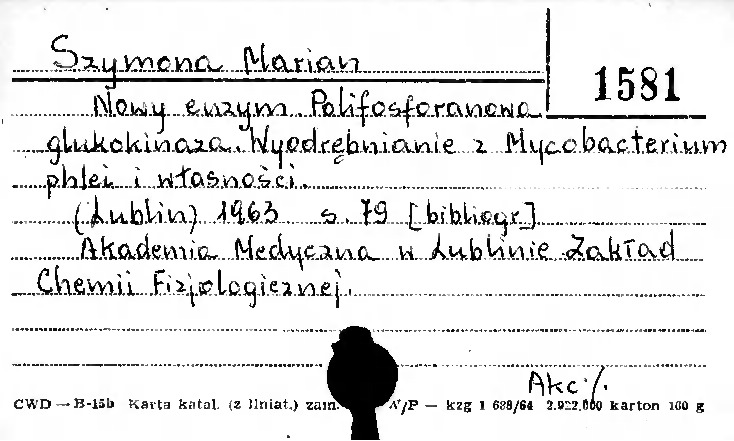 Szymona Marian
1581
Nowy enzym Polifosforanowa
glukokinaza. Wyodrębnianie z Mycobacterium
phlei i własności.
(Lublin) 1963 s. 79 [bibliogr.]
Akademia Medyczna w Lublinie Zakład
Chemii Fizjologicznej.
Akc /.
CWD — B-15b Karta katal. (z liniat.) zam. N/P — kzg 1 688/64 2.922.000 karton 160 g